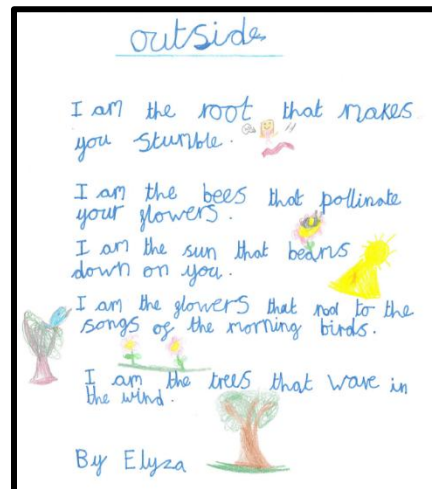 outside
I am the root that makes
you stumble.
I am the bees that pollinate
your flowers.
I am the sun that beams
down on you.
I am the flowers that nod to the
songs of the morning birds.
I am the trees that wave in
the wind.
By Elyza